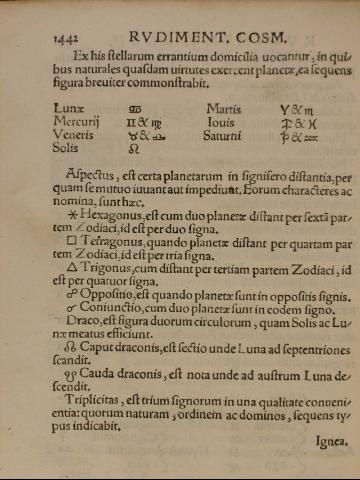 1442 RVDIMENT. COSM.
Ex his stellarum errantium domicilia uocantur, in qui
bus naturales quasdam uirtutes exercent planetæ, ea sequens
figura breuiter commonstrabit.
Lunæ ♋ Martis ♈ & ♏
Mercurij ♊ & ♍ Iouis ♐ & ♓
Veneris ♉ & ♎ Saturni ♑ & ♒
Solis ♌
Aspectus, est certa planetarum in signifero distantia, per
quam se mutuo iuuant aut impediunt. Eorum characteres ac
nomina, sunt hæc.
⚹ Hexagonus, est cum duo planetæ distant per sextã par-
tem Zodiaci, id est per duo signa.
□ Tetragonus, quando planetæ distant per quartam par
tem Zodiaci, id est per tria signa.
△ Trigonus, cum distant per tertiam partem Zodiaci, id
est per quatuor signa.
☍ Oppositio, est quando planetæ sunt in oppositis signis.
☌ Coniunctio, cum duo planetæ sunt in eodem signo.
Draco, est figura duorum circulorum, quam Solis ac Lu
næ meatus efficiunt.
☊ Caput draconis, est sectio unde Luna ad septentriones
scandit.
☋ Cauda draconis, est nota unde ad austrum Luna de-
scendit.
Triplicitas, est trium signorum in una qualitate conueni-
entia: quorum naturam, ordinem ac dominos, sequens ty-
pus indicabit.
Ignea.